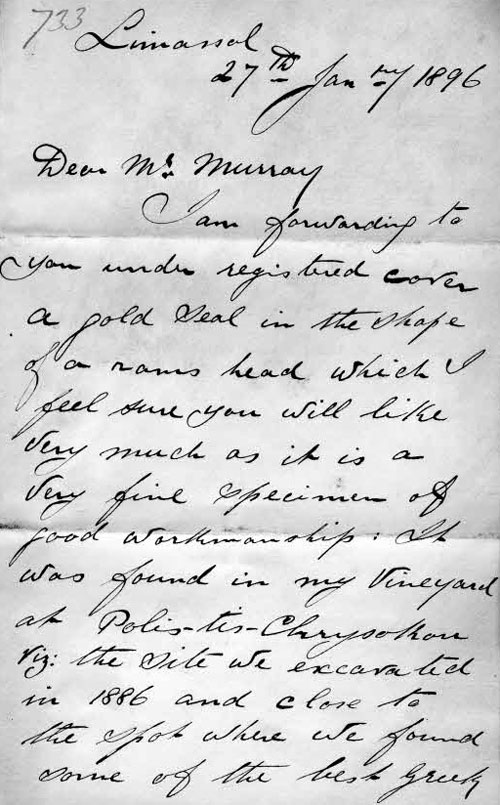 733
Limassol
27th Janry 1896
Dear Mr. Murray
I am forwarding to
you under registered cover
a gold seal in the shape
of a rams head which I
feel sure you will like
very much as it is a
very fine specimen of
good workmanship: It
was found in my Vineyard
at Polis-tis-Chrysokou
Viz: the site we excavated
in 1886 and close to
the spot where we found
some of the best Greek